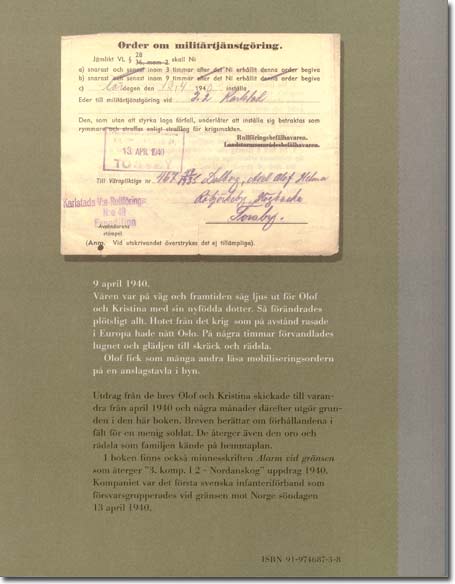 Order om militärtjänstgöring.
Jämlikt VL § 28
36, mom 2 skall Ni
a) snarast och senast inom 3 timmar efter det Ni erhållit denna order begiva
b) snarast och senast inom 9 timmar efter det Ni erhållit denna order begiva
c) lördagen den 13/4 1940 inställa
Eder till militärtjänstgöring vid I 2 Karlstad
Den, som utan att styrka laga förfall, underlåter att inställa sig betraktas som
rymmare och straffas enligt strafflag för krigsmakten.
Rullföringsbefälhavaren.
Landstormsområdesbefälhavaren.
13 APR 1940
TORSBY
Till Värnpliktige nr 464 Axel Olof
Torsby.
Karlstads V:s Rullförings
N:o 49
Expedition
Avsändarens
stämpel
(Anm. Vid utskrivandet överstrykes det ej tillämpliga).
9 april 1940.
Våren var på väg och framtiden såg ljus ut för Olof
och Kristina med sin nyfödda dotter. Så förändrades
plötsligt allt. Hotet från det krig som på avstånd rasade
i Europa hade nått Oslo. På några timmar förvandlades
lugnet och glädjen till skräck och rädsla.
Olof fick som många andra läsa mobiliseringsordern
på en anslagstavla i byn.
Utdrag från de brev Olof och Kristina skickade till varan-
dra från april 1940 och några månader därefter utgör grun-
den i den här boken. Breven berättar om förhållandena i
fält för en menig soldat. De återger även den oro och
rädsla som familjen kände på hemmaplan.
I boken finns också minnesskriften Alarm vid gränsen
som återger "3. komp. I 2 - Nordanskog" uppdrag 1940.
Kompaniet var det första svenska infanteriförband som
försvarsgrupperades vid gränsen mot Norge söndagen
13 april 1940.
ISBN 91-974687-3-8